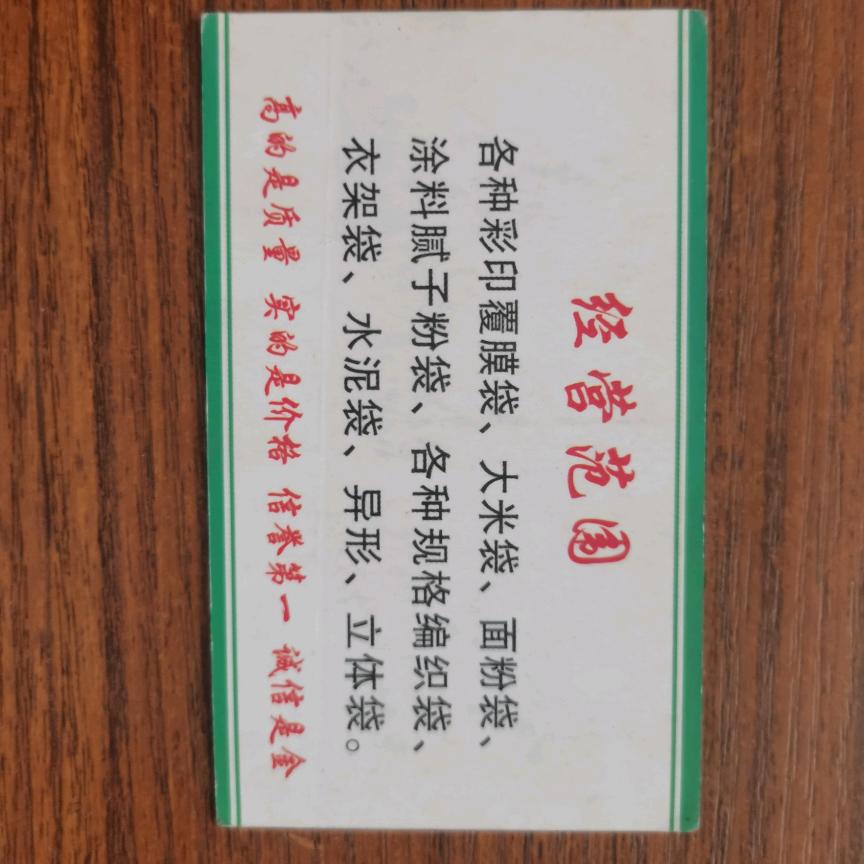 经营范围
各种彩印覆膜袋、大米袋、面粉袋、
涂料腻子粉袋、各种规格编织袋、
衣架袋、水泥袋、异形、立体袋。
高的是质量 实的是价格 信誉第一 诚信是金